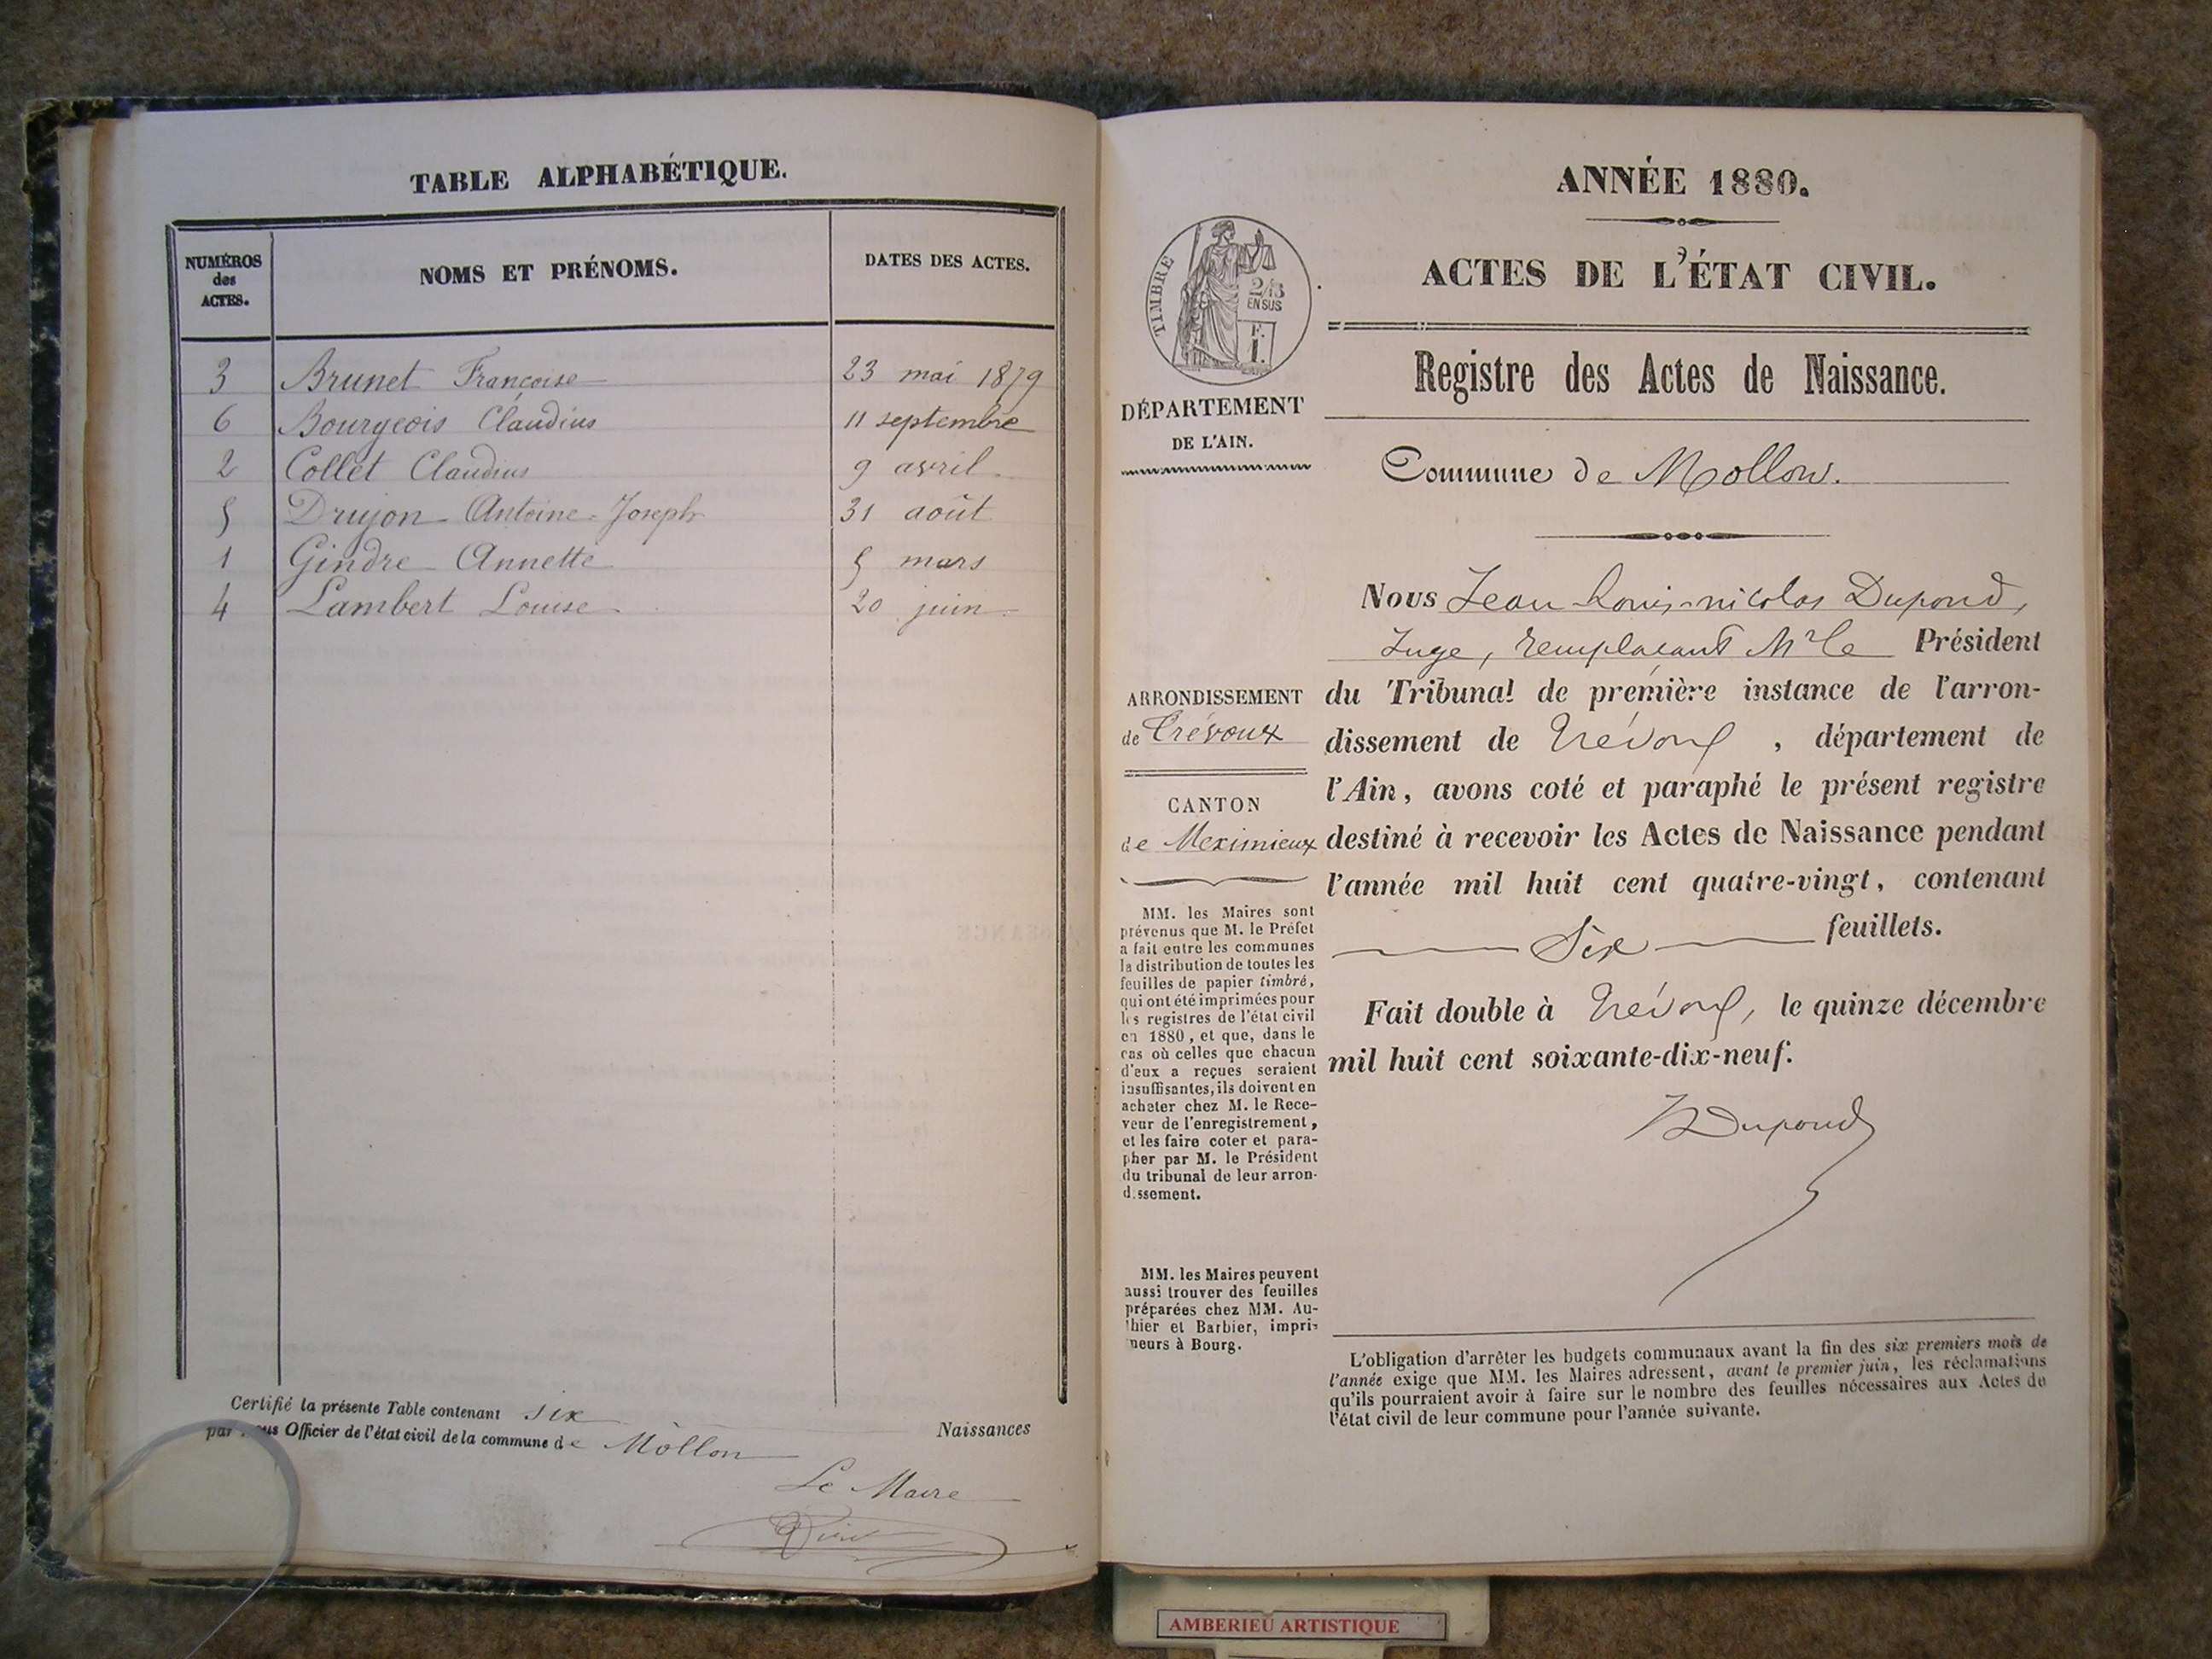 TABLE ALPHABÉTIQUE.
NUMÉROS
des
ACTES.
NOMS ET PRÉNOMS.
DATES DES ACTES.
3 Brunet Françoise 23 mai 1879
6 Bourgeois Claudius 11 septembre
2 Collet Claudius 9 avril
5 Drujon Antoine-Joseph 31 août
1 Gindre Annette 5 mars
4 Lambert Louise 20 juin
Certifié la présente Table contenant six Naissances
par nous Officier de l'état civil de la commune de Mollon
Le Maire
TIMBRE
2/10
EN SUS
DÉPARTEMENT
DE L'AIN.
ARRONDISSEMENT
de Trévoux
CANTON
de Meximieux
MM. les Maires sont
prévenus que M. le Préfet
a fait entre les communes
la distribution de toutes les
feuilles de papier timbré,
qui ont été imprimées pour
les registres de l'état civil
en 1880, et que, dans le
cas où celles que chacun
d'eux a reçues seraient
insuffisantes, ils doivent en
acheter chez M. le Rece-
veur de l'enregistrement,
et les faire coter et para-
pher par M. le Président
du tribunal de leur arron-
dissement.
MM. les Maires peuvent
aussi trouver des feuilles
préparées chez MM. Au-
thier et Barbier, impri-
meurs à Bourg.
ANNÉE 1880.
ACTES DE L'ÉTAT CIVIL.
Registre des Actes de Naissance.
Commune de Mollon.
Nous Jean Louis-nicolas Dupond,
Juge, remplaçant Mr le Président
du Tribunal de première instance de l'arron-
dissement de Trévoux, département de
l'Ain, avons coté et paraphé le présent registre
destiné à recevoir les Actes de Naissance pendant
l'année mil huit cent quatre-vingt, contenant
Six feuillets.
Fait double à Trévoux, le quinze décembre
mil huit cent soixante-dix-neuf.
Dupond
L'obligation d'arrêter les budgets communaux avant la fin des six premiers mois de
l'année exige que MM. les Maires adressent, avant le premier juin, les réclamations
qu'ils pourraient avoir à faire sur le nombre des feuilles nécessaires aux Actes de
l'état civil de leur commune pour l'année suivante.
AMBERIEU ARTISTIQUE